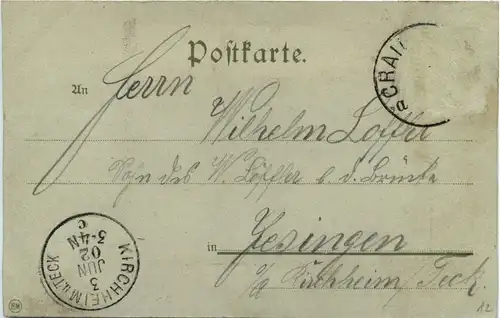 Postkarte.
CRAI
a
An
Herrn
Wilhelm Löffler
Sohn des W. Löffler b. d. Brücke
in
Jesingen
o/a Kirchheim/Teck.
KIRCHHEIM U. TECK
3
JUN
02
3-4N
c
12